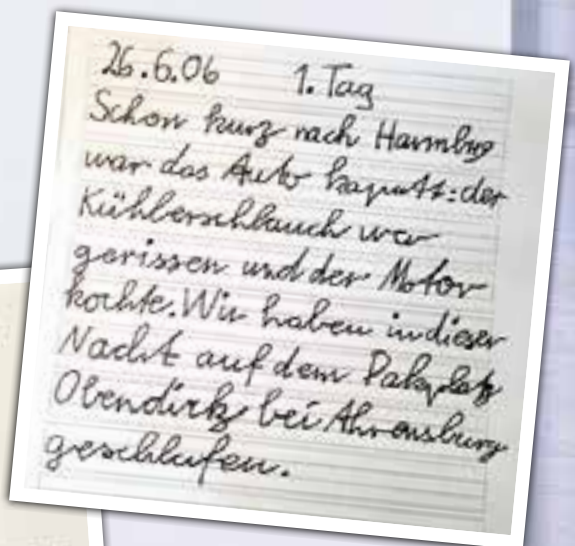 26.6.06 1. Tag
Schon kurz nach Hamburg
war das Auto kaputt: der
Kühlerschlauch war
gerissen und der Motor
kochte. Wir haben in dieser
Nacht auf dem
bei Ahrensburg
geschlafen.